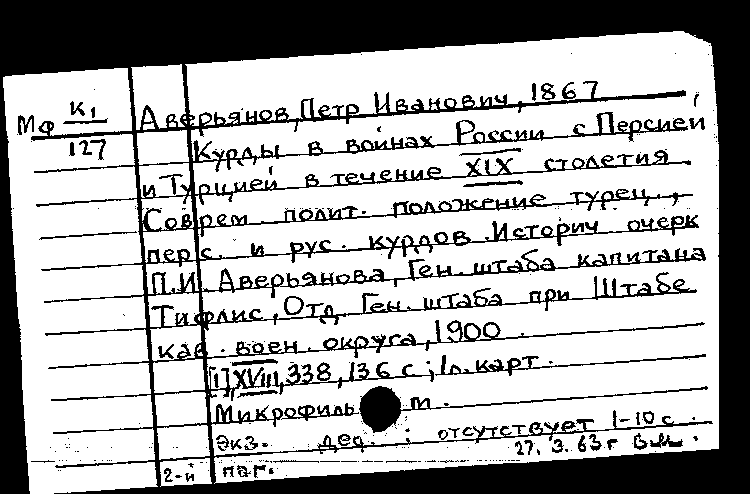 Мф К1 Аверьянов, Петр Иванович, 1867
127 Курды в войнах России с Персией
и Турцией в течение XIX столетия.
Соврем. полит. положение турец.,
перс. и рус. курдов. Историч очерк
П.И. Аверьянова, Ген. штаба капитана
Тифлис, Отд. Ген. штаба при Штабе
кав. воен. округа, 1900.
[1], XVIII, 338, 136 с; 1л. карт.
Микрофильм.
Экз. дед.: отсутствует 1-10 с.
27. 3. 63 г
2-й паг.